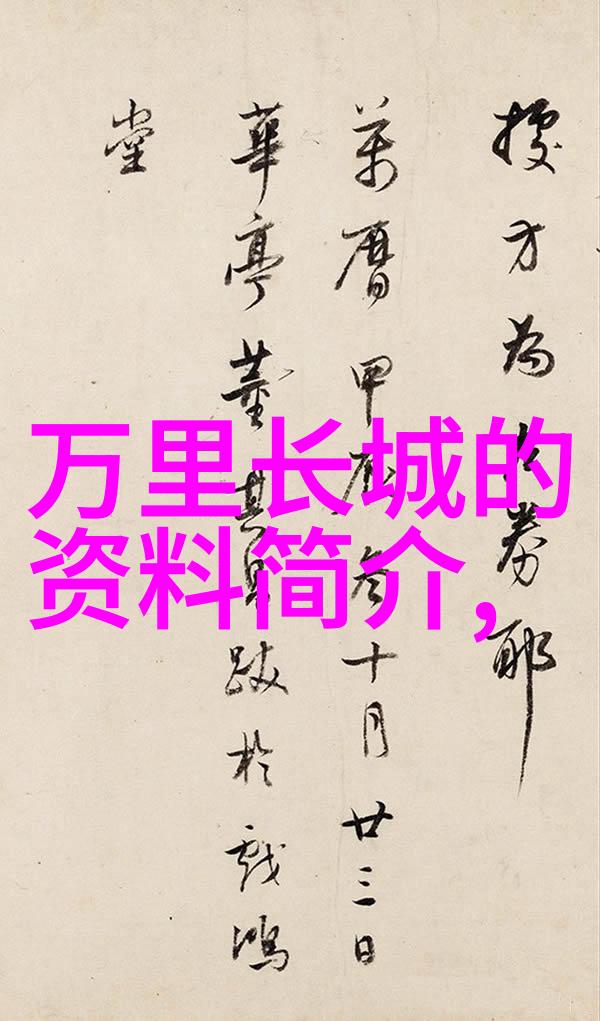 據方為左券耶
萬曆甲辰冬十月廿三日
華亭董其昌跋於戲鴻
堂
万里长城的
资料简介,